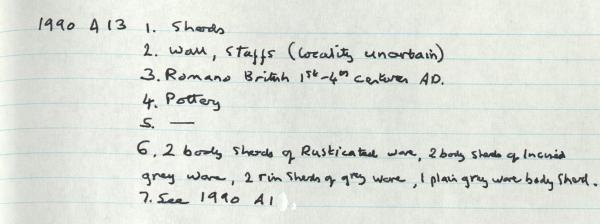 1990 A 13 1. Sherds
2. Wall, Staffs (locality uncertain)
3. Romano British 1st-4th centuries AD.
4. Pottery
5. —
6. 2 body sherds of Rusticated ware, 2 body sherds of Incised
grey ware, 2 rim sherds of grey ware, 1 plain grey ware body sherd.
7. See 1990 A1